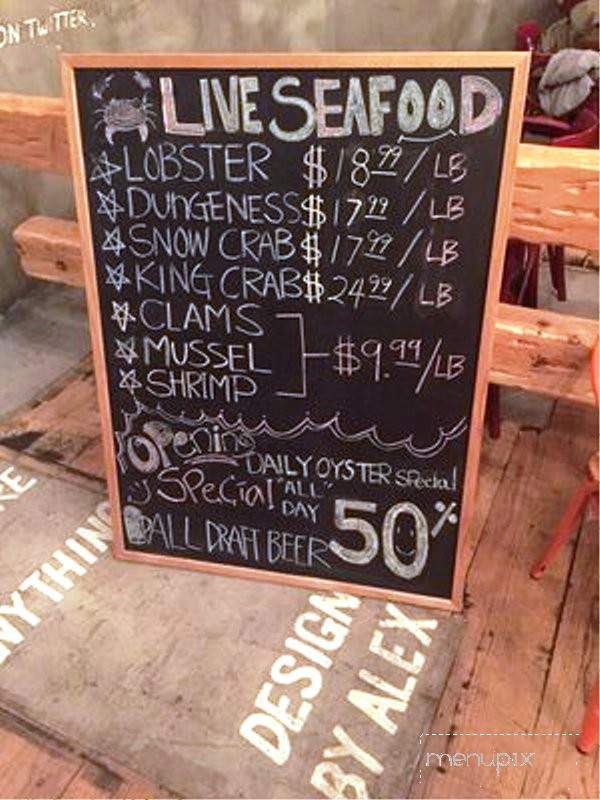 ON TWITTER.
LIVE SEAFOOD
LOBSTER $18.99/LB
DUNGENESS $17.99/LB
SNOW CRAB $17.99/LB
KING CRAB $24.99/LB
CLAMS
MUSSEL $9.99/LB
SHRIMP
OPening DAILY OYSTER Special
Special "ALL" DAY 50%
ALL DRAFT BEER
RE
NYTHING
DESIGN
BY ALEX
menupix